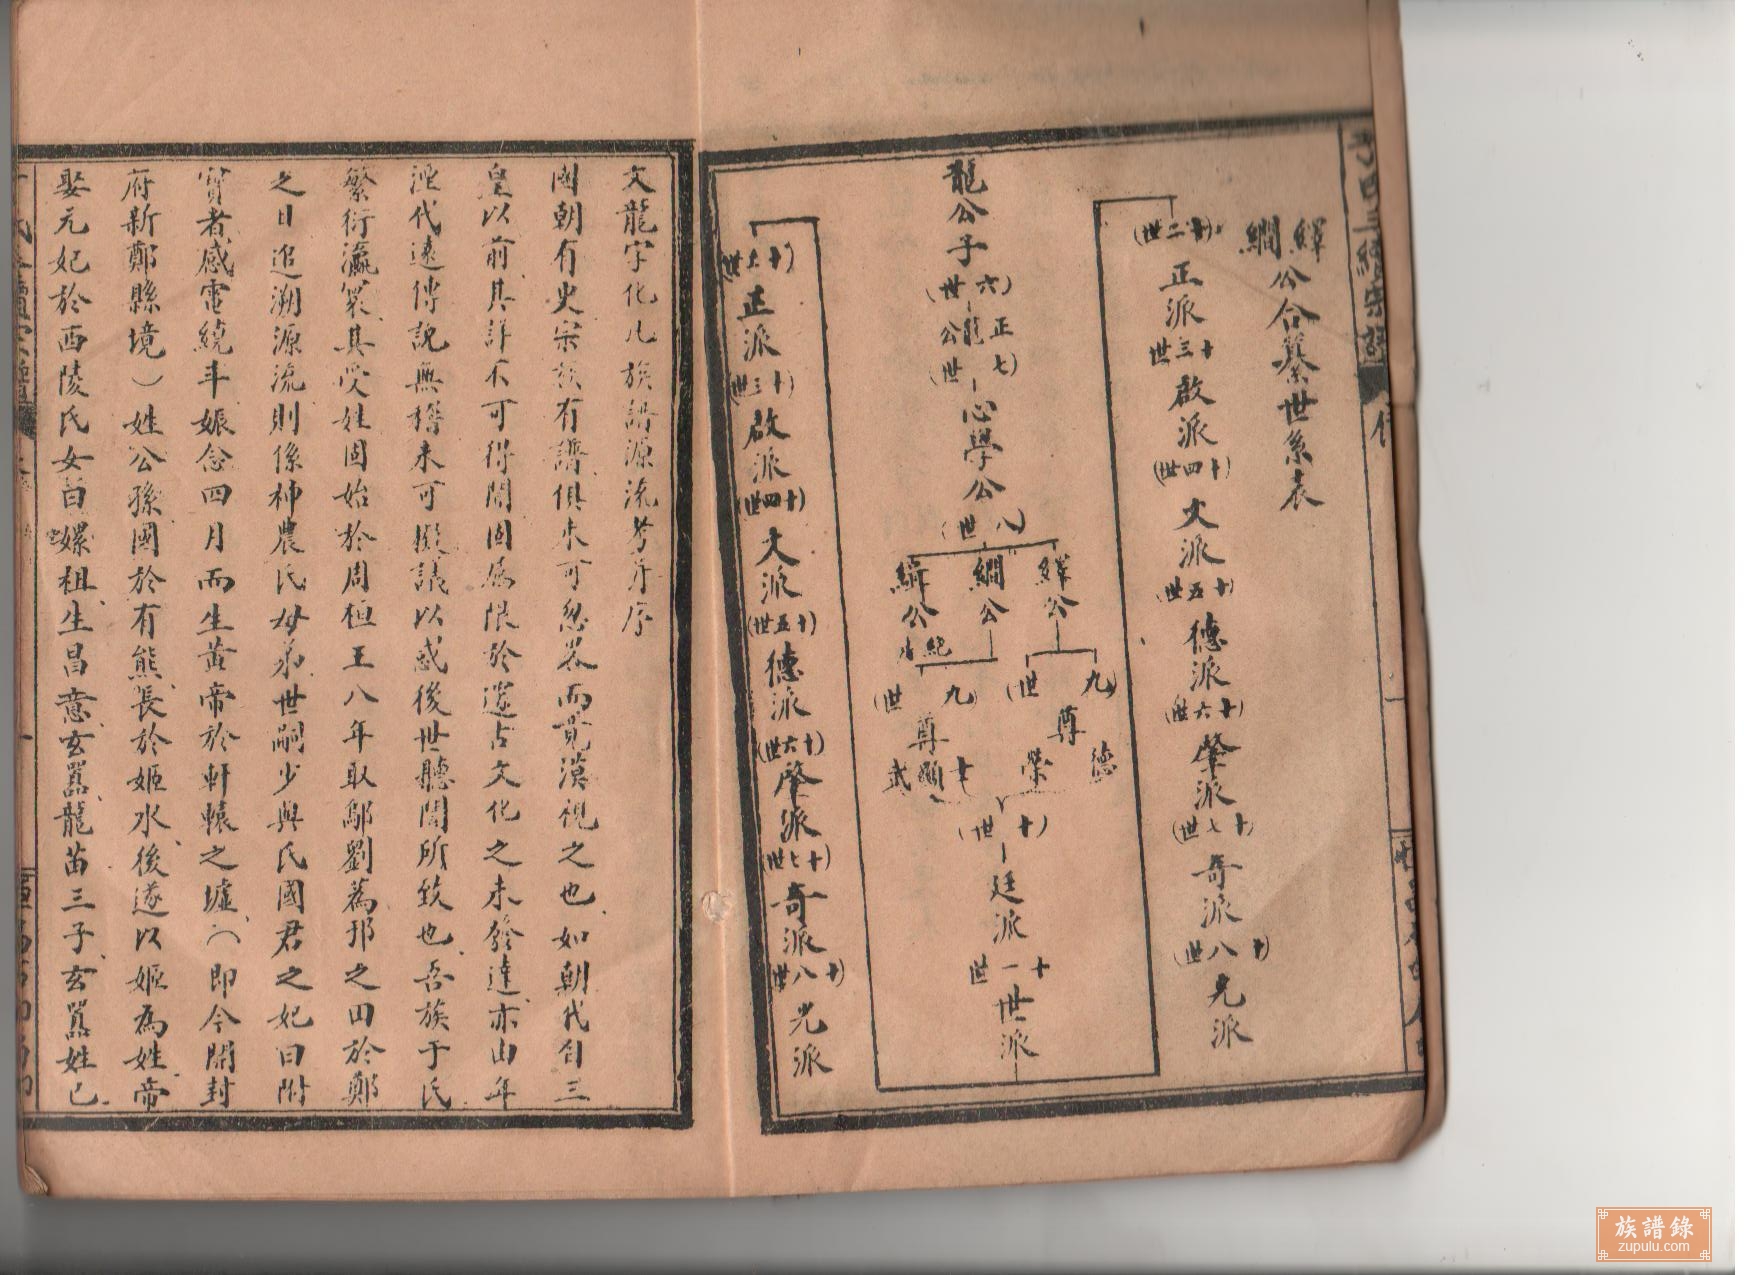 繹
繝
公合纂世系表
龍公子
(六世)
正龍公
(七世)
心學公
(八世)
繹公
繝公
緝公
紀
(九世)
尊
德
榮
(九世)
尊
士
顯
武
(十世)
廷派
十一世
世派
(十二世)
正派
十三世
啟派
(十四世)
文派
(十五世)
德派
(十六世)
肇派
(十七世)
奇派
(十八世)
光派
正派
(十三世)
啟派
(十四世)
文派
(十五世)
德派
(十六世)
肇派
(十七世)
奇派
(十八世)
光派
文龍字化凡族譜源流考弁序
國朝有史宗族有譜俱未可忽畧而荒漠視之也如朝代自三
皇以前其詳不可得聞固為限於邃古文化之未發達亦由年
湮代遠傳說無稽未可擬議以惑後世聽聞所致也吾族于氏
繁衍瀛寰其受姓固始於周桓王八年取鄔劉蒍邘之田於鄭
之日追溯源流則係神農氏母弟世嗣少典氏國君之妃曰附
寶者感電繞斗娠念四月而生黃帝於軒轅之墟（即今開封
府新鄭縣境）姓公孫國於有熊長於姬水後遂以姬為姓帝
娶元妃於西陵氏女曰嫘祖生昌意玄囂龍苗三子玄囂姓己
族譜錄
zupulu.com